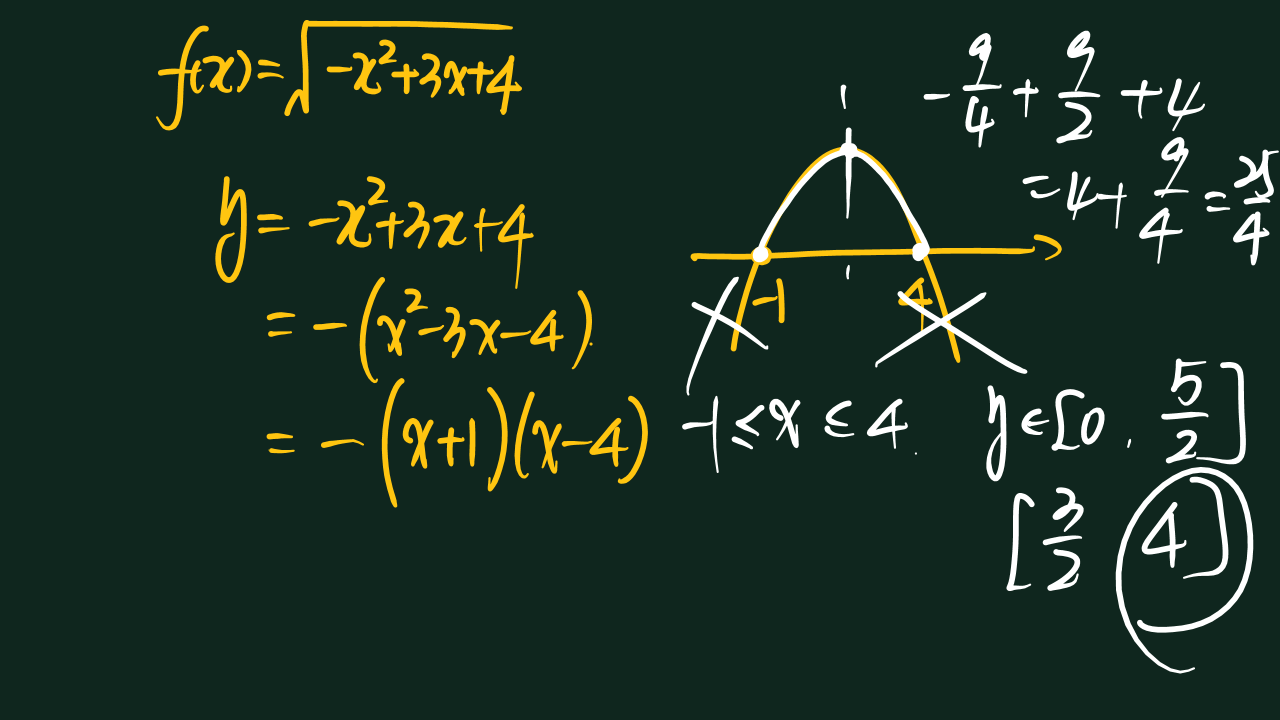 f(x)=√(-x²+3x+4)
y= -x²+3x+4
= -(x²-3x-4)
= -(x+1)(x-4)
-1
4
-9/4+9/2+4
=4+9/4=25/4
-1≤x≤4
y∈[0, 5/2]
[3/2 4]